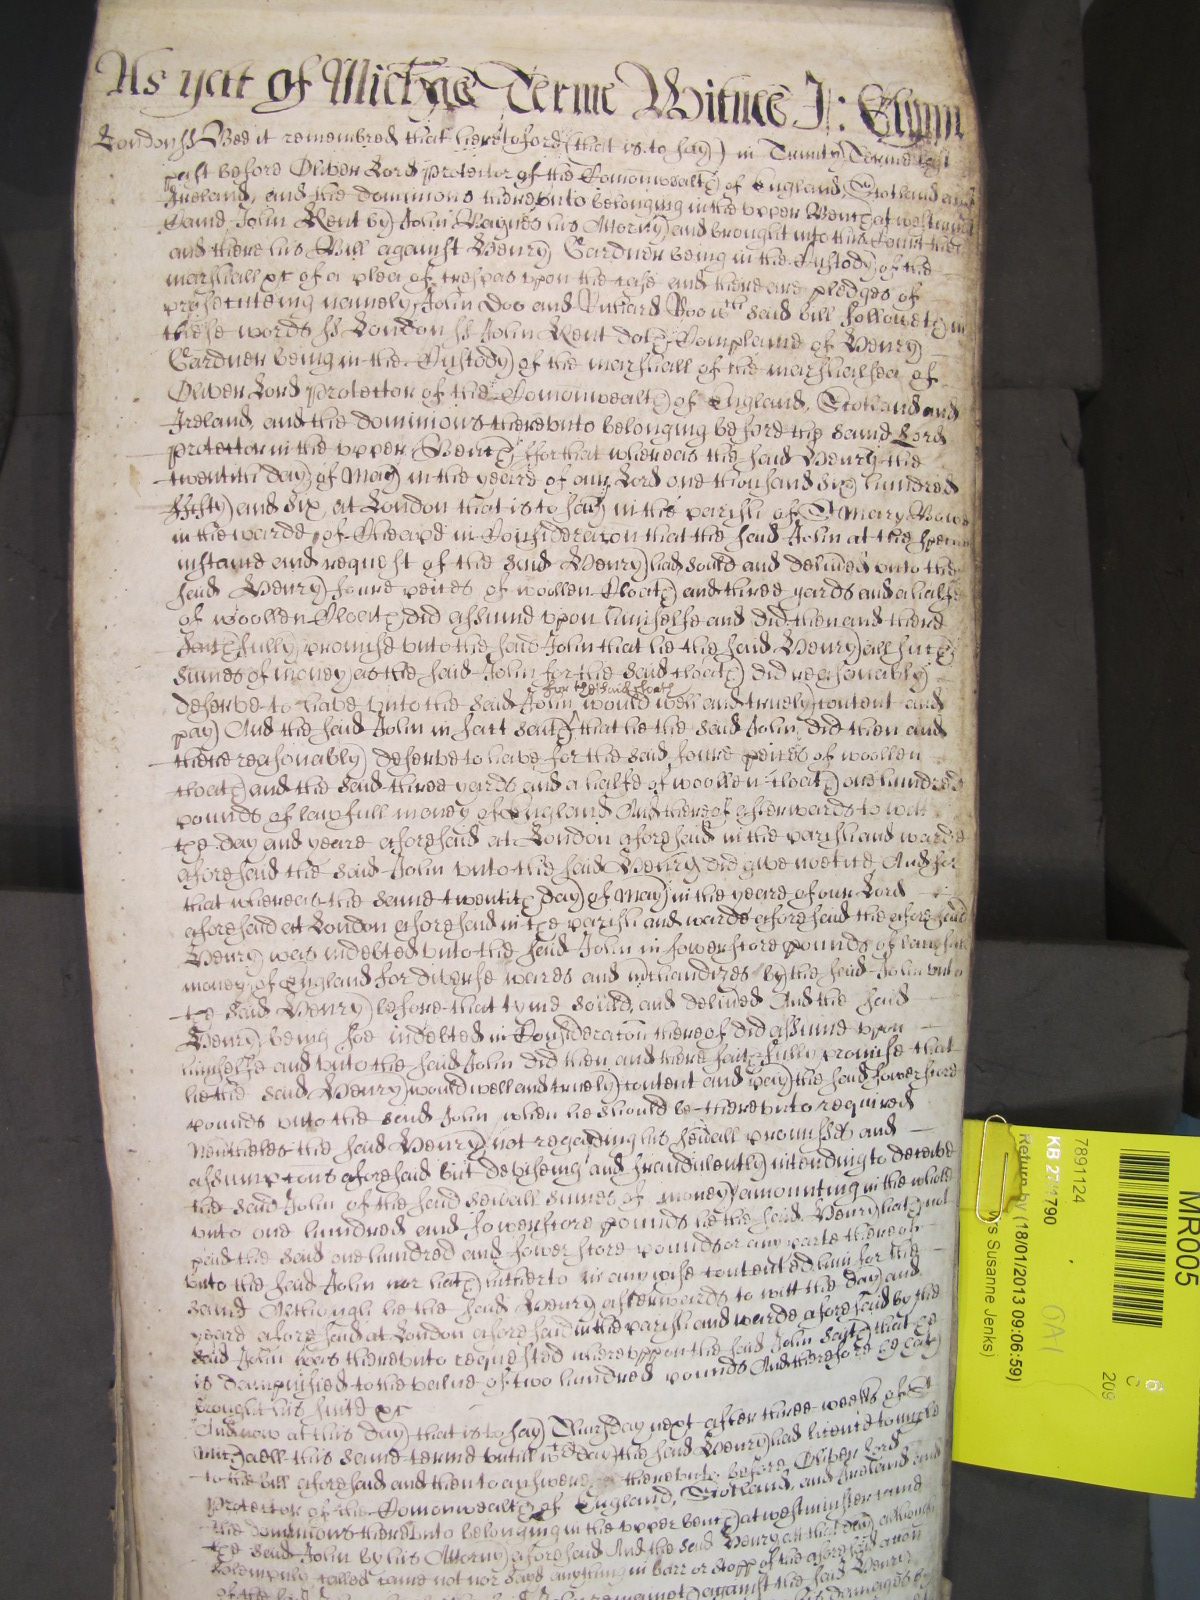 As yett of Mich'as Terme Witnes J: Glynn
London ss Bee it remembred that heretofore (that is to say) in Trinity Terme last
past before Oliver Lord protector of the Comonwealth of England, Scotland and
Ireland, and the dominions thereunto belonging in the upper Bench at westminster
Came John Kent by John his Attorny and brought into this Court then
and there his Bill against Henry Gardner being in the Custody of the
marshall &c of a plea of trespas upon the case and there are pledges of
prosecuteing namely John Doo and Richard Roo wch said bill followeth in
these words ss London ss John Kent doth Complaine of Henry
Gardner being in the Custody of the marshall of the marshalsea of
Oliver Lord protector of the Comonwealth of England, Scotland and
Ireland, and the dominions thereunto belonging before the same Lord
protector in the upper Bench, ffor that whereas the said Henry the
twentith day of May in the yeare of our Lord one thousand six hundred
fifty and six, at London that is to say in the parish of St Mary Bowe
in the warde of Cheape in Consideracon that the said John at the speciall
instance and request of the said Henry had sould and delived unto the
said Henry foure peices of woollen Cloath and three yards and a halfe
of woollen Cloath, did assume upon himselfe and did then and there
faithfully promise unto the said John that he the said Henry all such
sumes of money as the said John for the said cloath did reasonably
for the said cloath
deserve to have unto the said John would well and truely content and
pay And the said John in fact saith that he the said John did then and
there reasonably deserve to have for the said foure peices of woollen
cloath and the said three yards and a halfe of woollen cloath one hundred
pounds of lawfull money of England And thereof afterwards to witt
the day and yeare aforesaid at London aforesaid in the parish and warde
aforesaid the said John unto the said Henry did give notice And for
that whereas the same twentith day of May in the yeare of our Lord
aforesaid att London aforesaid in the parish and warde aforesaid the aforesaid
Henry was indebted unto the said John in fowerscore pounds of lawfull
money of England for diverse wares and mchandizes by the said John unto
the said Henry before that tyme sould, and delived And the said
Henry being soe indebted in Consideracon thereof did assume upon
himselfe and unto the said John did then and there faithfully promise that
he the said Henry would well and truely content and pay the said fowerscore
pounds unto the said John when he should be thereunto required
Nevtheles the said Henry not regarding his sevall promises and
assumptons aforesaid but deviseing and fraudulently intending to deceive
the said John of the said sevall sumes of money amounting in the whole
unto one hundred and fowerscore pounds he the said Henry hath not
paid the said one hundred and fowerscore pounds or any parte thereof
unto the said John nor hath hitherto in any wise contented him for the
same Although he the said Henry afterwards to witt the day and
yeare aforesaid at London aforesaid in the parish and warde aforesaid by the
said John was thereunto requested whereuppon the said John saith that he
is dampnified to the value of two hundred pounds And therefore he
brought his suite &c
And now at this day that is to say Thursday next after three weekes of St
Michaell this same terme untill wch day the said Henry had licence to
to the bill aforesaid and then to answere thereunto before Oliver Lord
Protector of the Comonwealth of England, Scotland, and Ireland and
the dominions thereunto belonging in the upper bench at westminster came
the said John by his Attorny aforesaid And the said Henry att that day although
solempnly called came not nor said anything in barr or stopp of the aforesaid accon
of the said John remaineth against the said Henry
MR005
7891124
KB 27/4790
Return by (18/01/2013 09:06:59)
Ms Susanne Jenks)
6
C
209